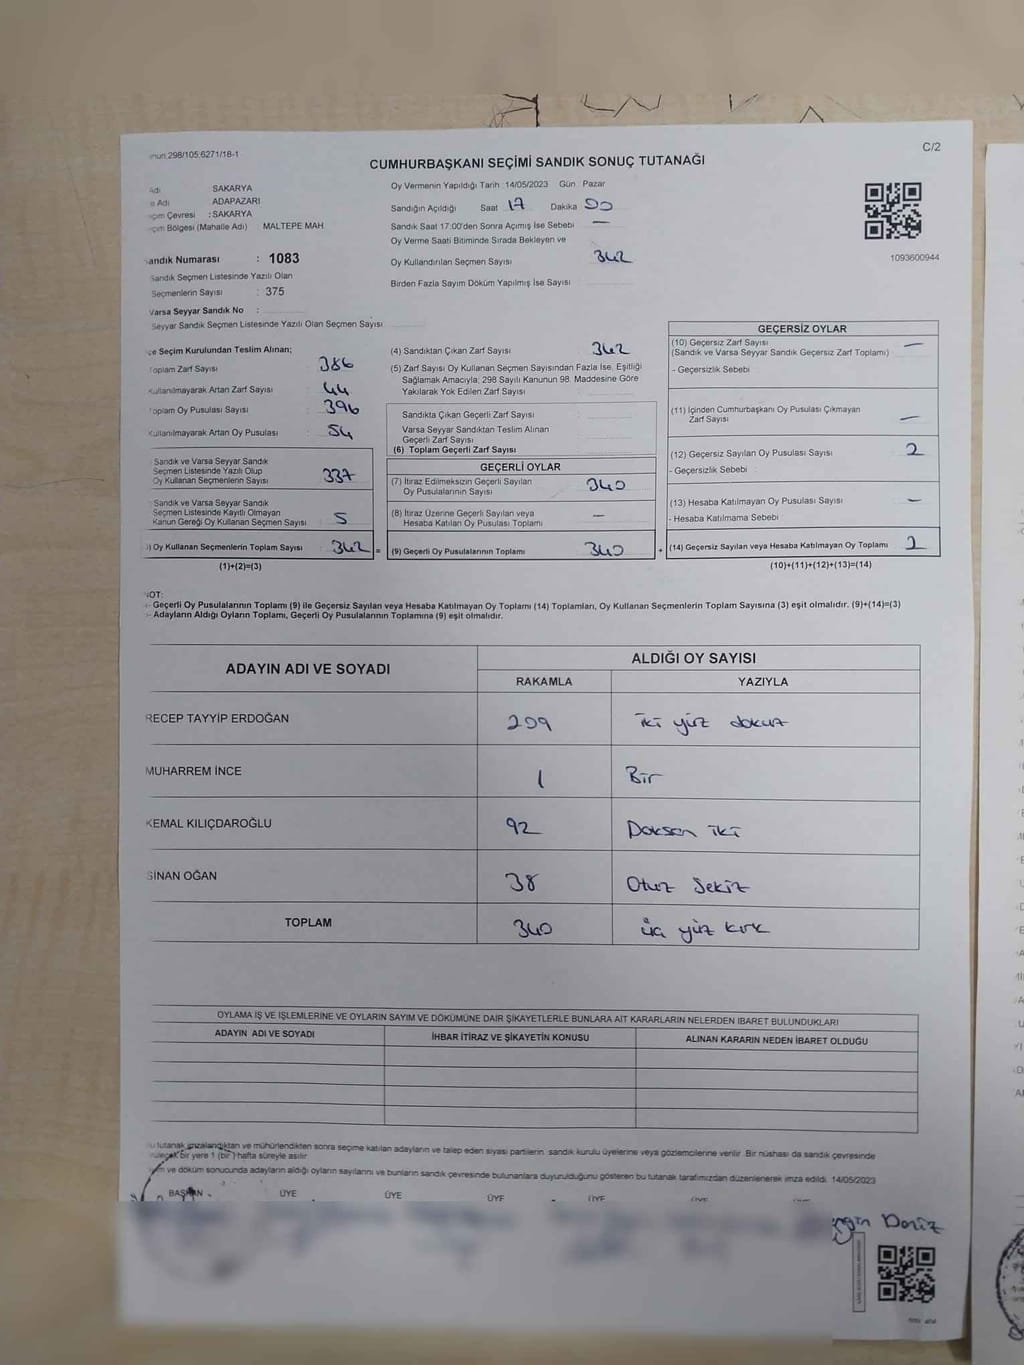 298/105.6271/18-1
C/2
CUMHURBAŞKANI SEÇİMİ SANDIK SONUÇ TUTANAĞI
SAKARYA
ADAPAZARI
: SAKARYA
(Mahalle Adı) MALTEPE MAH.
Oy Vermenin Yapıldığı Tarih 14/05/2023 Gün Pazar
Sandığın Açıldığı Saat 17 Dakika 00
Sandık Saat 17:00'den Sonra Açımış İse Sebebi —
Oy Verme Saati Bitiminde Sırada Bekleyen ve
Oy Kullandırılan Seçmen Sayısı 342
Birden Fazla Sayım Döküm Yapılmış İse Sayısı
1093600944
andık Numarası : 1083
Sandık Seçmen Listesinde Yazılı Olan
Seçmenlerin Sayısı : 375
Varsa Seyyar Sandık No :
Seyyar Sandık Seçmen Listesinde Yazılı Olan Seçmen Sayısı
çe Seçim Kurulundan Teslim Alınan;
Toplam Zarf Sayısı 386
Kullanılmayarak Artan Zarf Sayısı 44
Toplam Oy Pusulası Sayısı 396
Kullanılmayarak Artan Oy Pusulası 54
Sandık ve Varsa Seyyar Sandık
Seçmen Listesinde Yazılı Olup
Oy Kullanan Seçmenlerin Sayısı 337
Sandık ve Varsa Seyyar Sandık
Seçmen Listesinde Kayıtlı Olmayan
Kanun Gereği Oy Kullanan Seçmen Sayısı 5
) Oy Kullanan Seçmenlerin Toplam Sayısı : 342 =
(1)+(2)=(3)
(4) Sandıktan Çıkan Zarf Sayısı 342
(5) Zarf Sayısı Oy Kullanan Seçmen Sayısından Fazla İse, Eşitliği
Sağlamak Amacıyla; 298 Sayılı Kanunun 98. Maddesine Göre
Yakılarak Yok Edilen Zarf Sayısı
Sandıkta Çıkan Geçerli Zarf Sayısı
Varsa Seyyar Sandıktan Teslim Alınan
Geçerli Zarf Sayısı
(6) Toplam Geçerli Zarf Sayısı
GEÇERLİ OYLAR
(7) İtiraz Edilmeksizin Geçerli Sayılan
Oy Pusulalarının Sayısı 340
(8) İtiraz Üzerine Geçerli Sayılan veya
Hesaba Katılan Oy Pusulası Toplamı —
(9) Geçerli Oy Pusulalarının Toplamı 340 +
GEÇERSİZ OYLAR
(10) Geçersiz Zarf Sayısı —
(Sandık ve Varsa Seyyar Sandık Geçersiz Zarf Toplamı)
- Geçersizlik Sebebi
(11) İçinden Cumhurbaşkanı Oy Pusulası Çıkmayan
Zarf Sayısı —
(12) Geçersiz Sayılan Oy Pusulası Sayısı 2
- Geçersizlik Sebebi
(13) Hesaba Katılmayan Oy Pusulası Sayısı —
- Hesaba Katılmama Sebebi
(14) Geçersiz Sayılan veya Hesaba Katılmayan Oy Toplamı 2
(10)+(11)+(12)+(13)=(14)
NOT:
- Geçerli Oy Pusulalarının Toplamı (9) ile Geçersiz Sayılan veya Hesaba Katılmayan Oy Toplamı (14) Toplamları, Oy Kullanan Seçmenlerin Toplam Sayısına (3) eşit olmalıdır. (9)+(14)=(3)
- Adayların Aldığı Oyların Toplamı, Geçerli Oy Pusulalarının Toplamına (9) eşit olmalıdır.
ADAYIN ADI VE SOYADI
ALDIĞI OY SAYISI
RAKAMLA YAZIYLA
RECEP TAYYİP ERDOĞAN 209 iki yüz dokuz
MUHARREM İNCE 1 Bir
KEMAL KILIÇDAROĞLU 92 Doksan iki
SİNAN OĞAN 38 Otuz Sekiz
TOPLAM 340 üç yüz kırk
OYLAMA İŞ VE İŞLEMLERİNE VE OYLARIN SAYIM VE DÖKÜMÜNE DAİR ŞİKAYETLERLE BUNLARA AİT KARARLARIN NELERDEN İBARET BULUNDUKLARI
ADAYIN ADI VE SOYADI İHBAR İTİRAZ VE ŞİKAYETİN KONUSU ALINAN KARARIN NEDEN İBARET OLDUĞU
tutanak imzalandıktan ve mühürlendikten sonra seçime katılan adayların ve talep eden siyasi partilerin sandık kurulu üyelerine veya gözlemcilerine verilir. Bir nüshası da sandık çevresinde
bir yere 1 (bir) hafta süreyle asılır
ve döküm sonucunda adayların aldığı oyların sayılarını ve bunların sandık çevresinde bulunanlara duyurulduğunu gösteren bu tutanak tarafımızdan düzenlenerek imza edildi. 14/05/2023
BAŞKAN ÜYE ÜYE ÜYE ÜYE ÜYE
Deniz